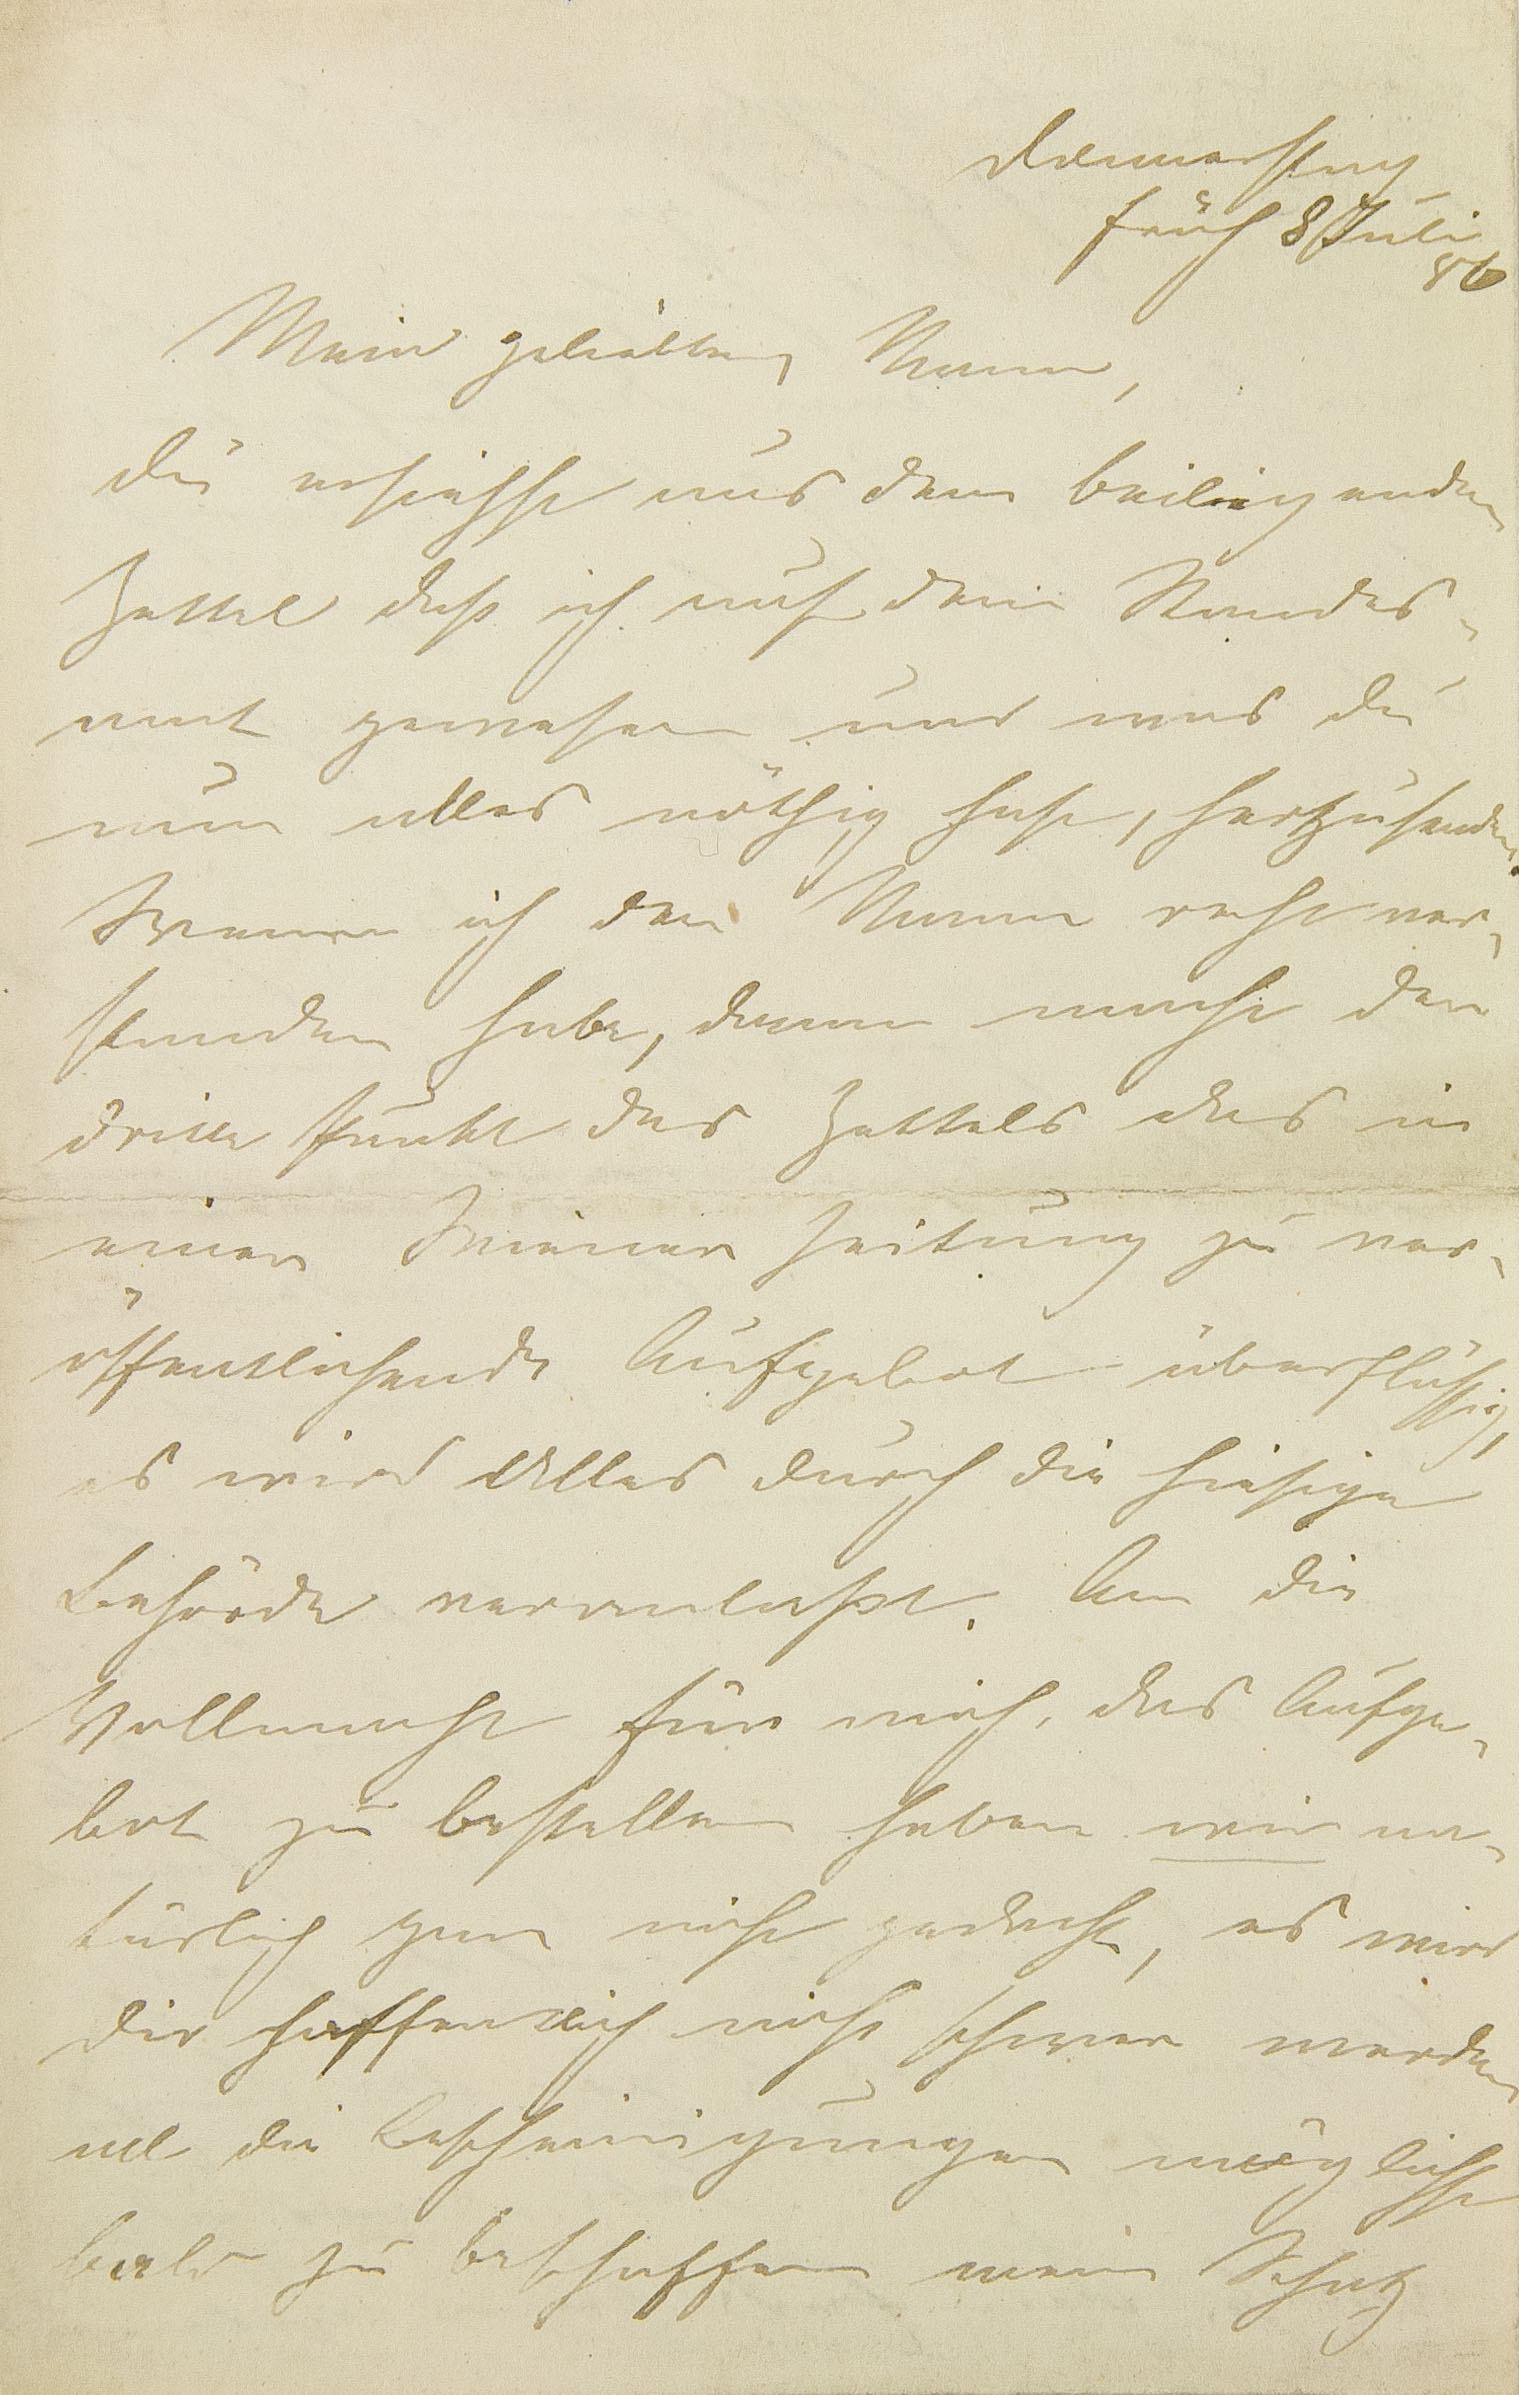 Donnerstag
früh 8 Juli
86
Mein geliebter Mann,
du ersiehst aus dem beiliegenden
Zettel daß ich auf dem Standes-
amt gewesen und was du
nun alles nöthig hast, herzusenden.
Wenn ich den Mann recht ver-
standen habe, dann macht der
dritte Punkt des Zettels das in
einer Wiener Zeitung zu ver-
öffentlichende Aufgebot überflüssig,
es wird Alles durch die hiesige
Behörde veranlaßt. An die
Vollmacht für mich, das Aufge-
bot zu bestellen haben wir na-
türlich gar nicht gedacht, es wird
dir hoffentlich nicht schwer werden
all die Bescheinigungen möglichst
bald zu beschaffen mein Schatz